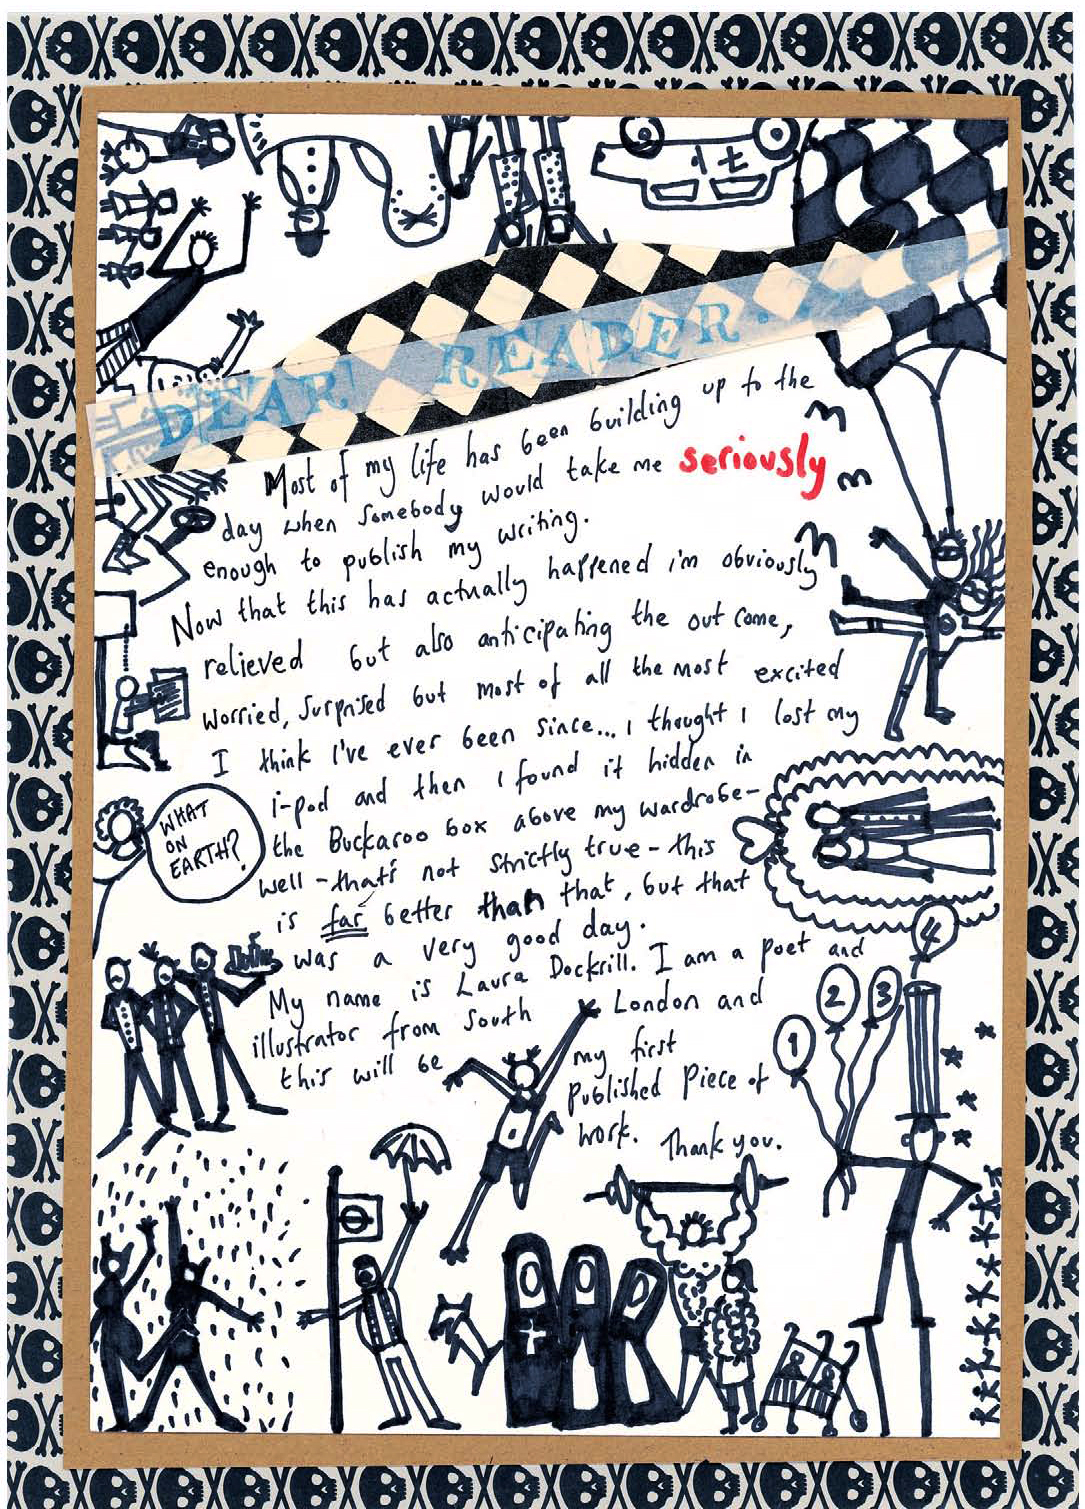 DEAR READER...
Most of my life has been building up to the
day when somebody would take me seriously
enough to publish my writing.
Now that this has actually happened i'm obviously
relieved but also anticipating the out come,
worried, surprised but most of all the most excited
I think I've ever been since... I thought I lost my
i-pod and then I found it hidden in
the Buckaroo box above my wardrobe-
well - that's not strictly true - this
is far better than that, but that
was a very good day.
My name is Laura Dockrill. I am a poet and
illustrator from South London and
this will be my first
published piece of
work. Thank you.
WHAT
ON
EARTH?
1
2
3
4